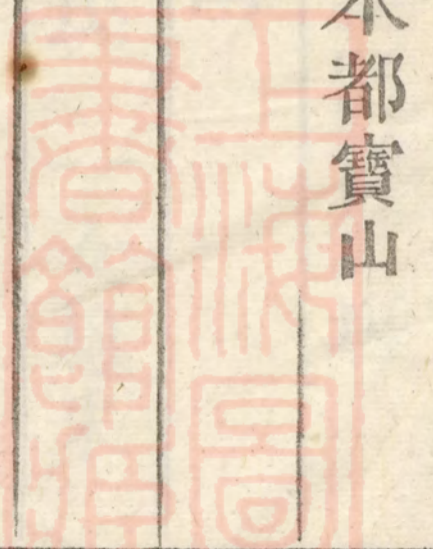 本都寶山
上海圖
書館藏